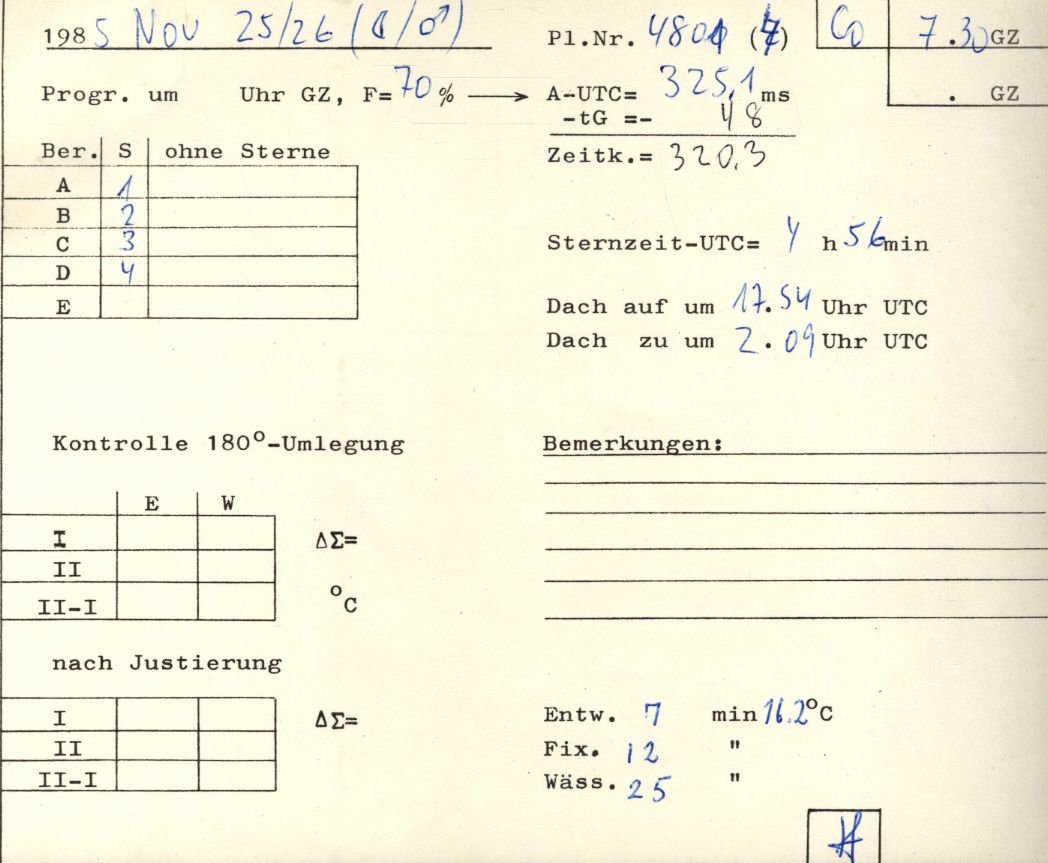 1985 Nov 25/26 (☾/♂) Pl.Nr. 480 Co 7.30 GZ
Progr. um Uhr GZ, F=70% → A-UTC= 325,1 ms . GZ
-tG =- 48
Zeitk.= 320,3
Ber. S ohne Sterne
A 1
B 2
C 3
D 4
E
Sternzeit-UTC= 4 h 56 min
Dach auf um 17.54 Uhr UTC
Dach zu um 2.09 Uhr UTC
Kontrolle 180°-Umlegung
E W
I ΔΣ=
II
II-I °C
nach Justierung
I ΔΣ=
II
II-I
Bemerkungen:
Entw. 7 min 16.2°C
Fix. 12 "
Wäss. 25 "